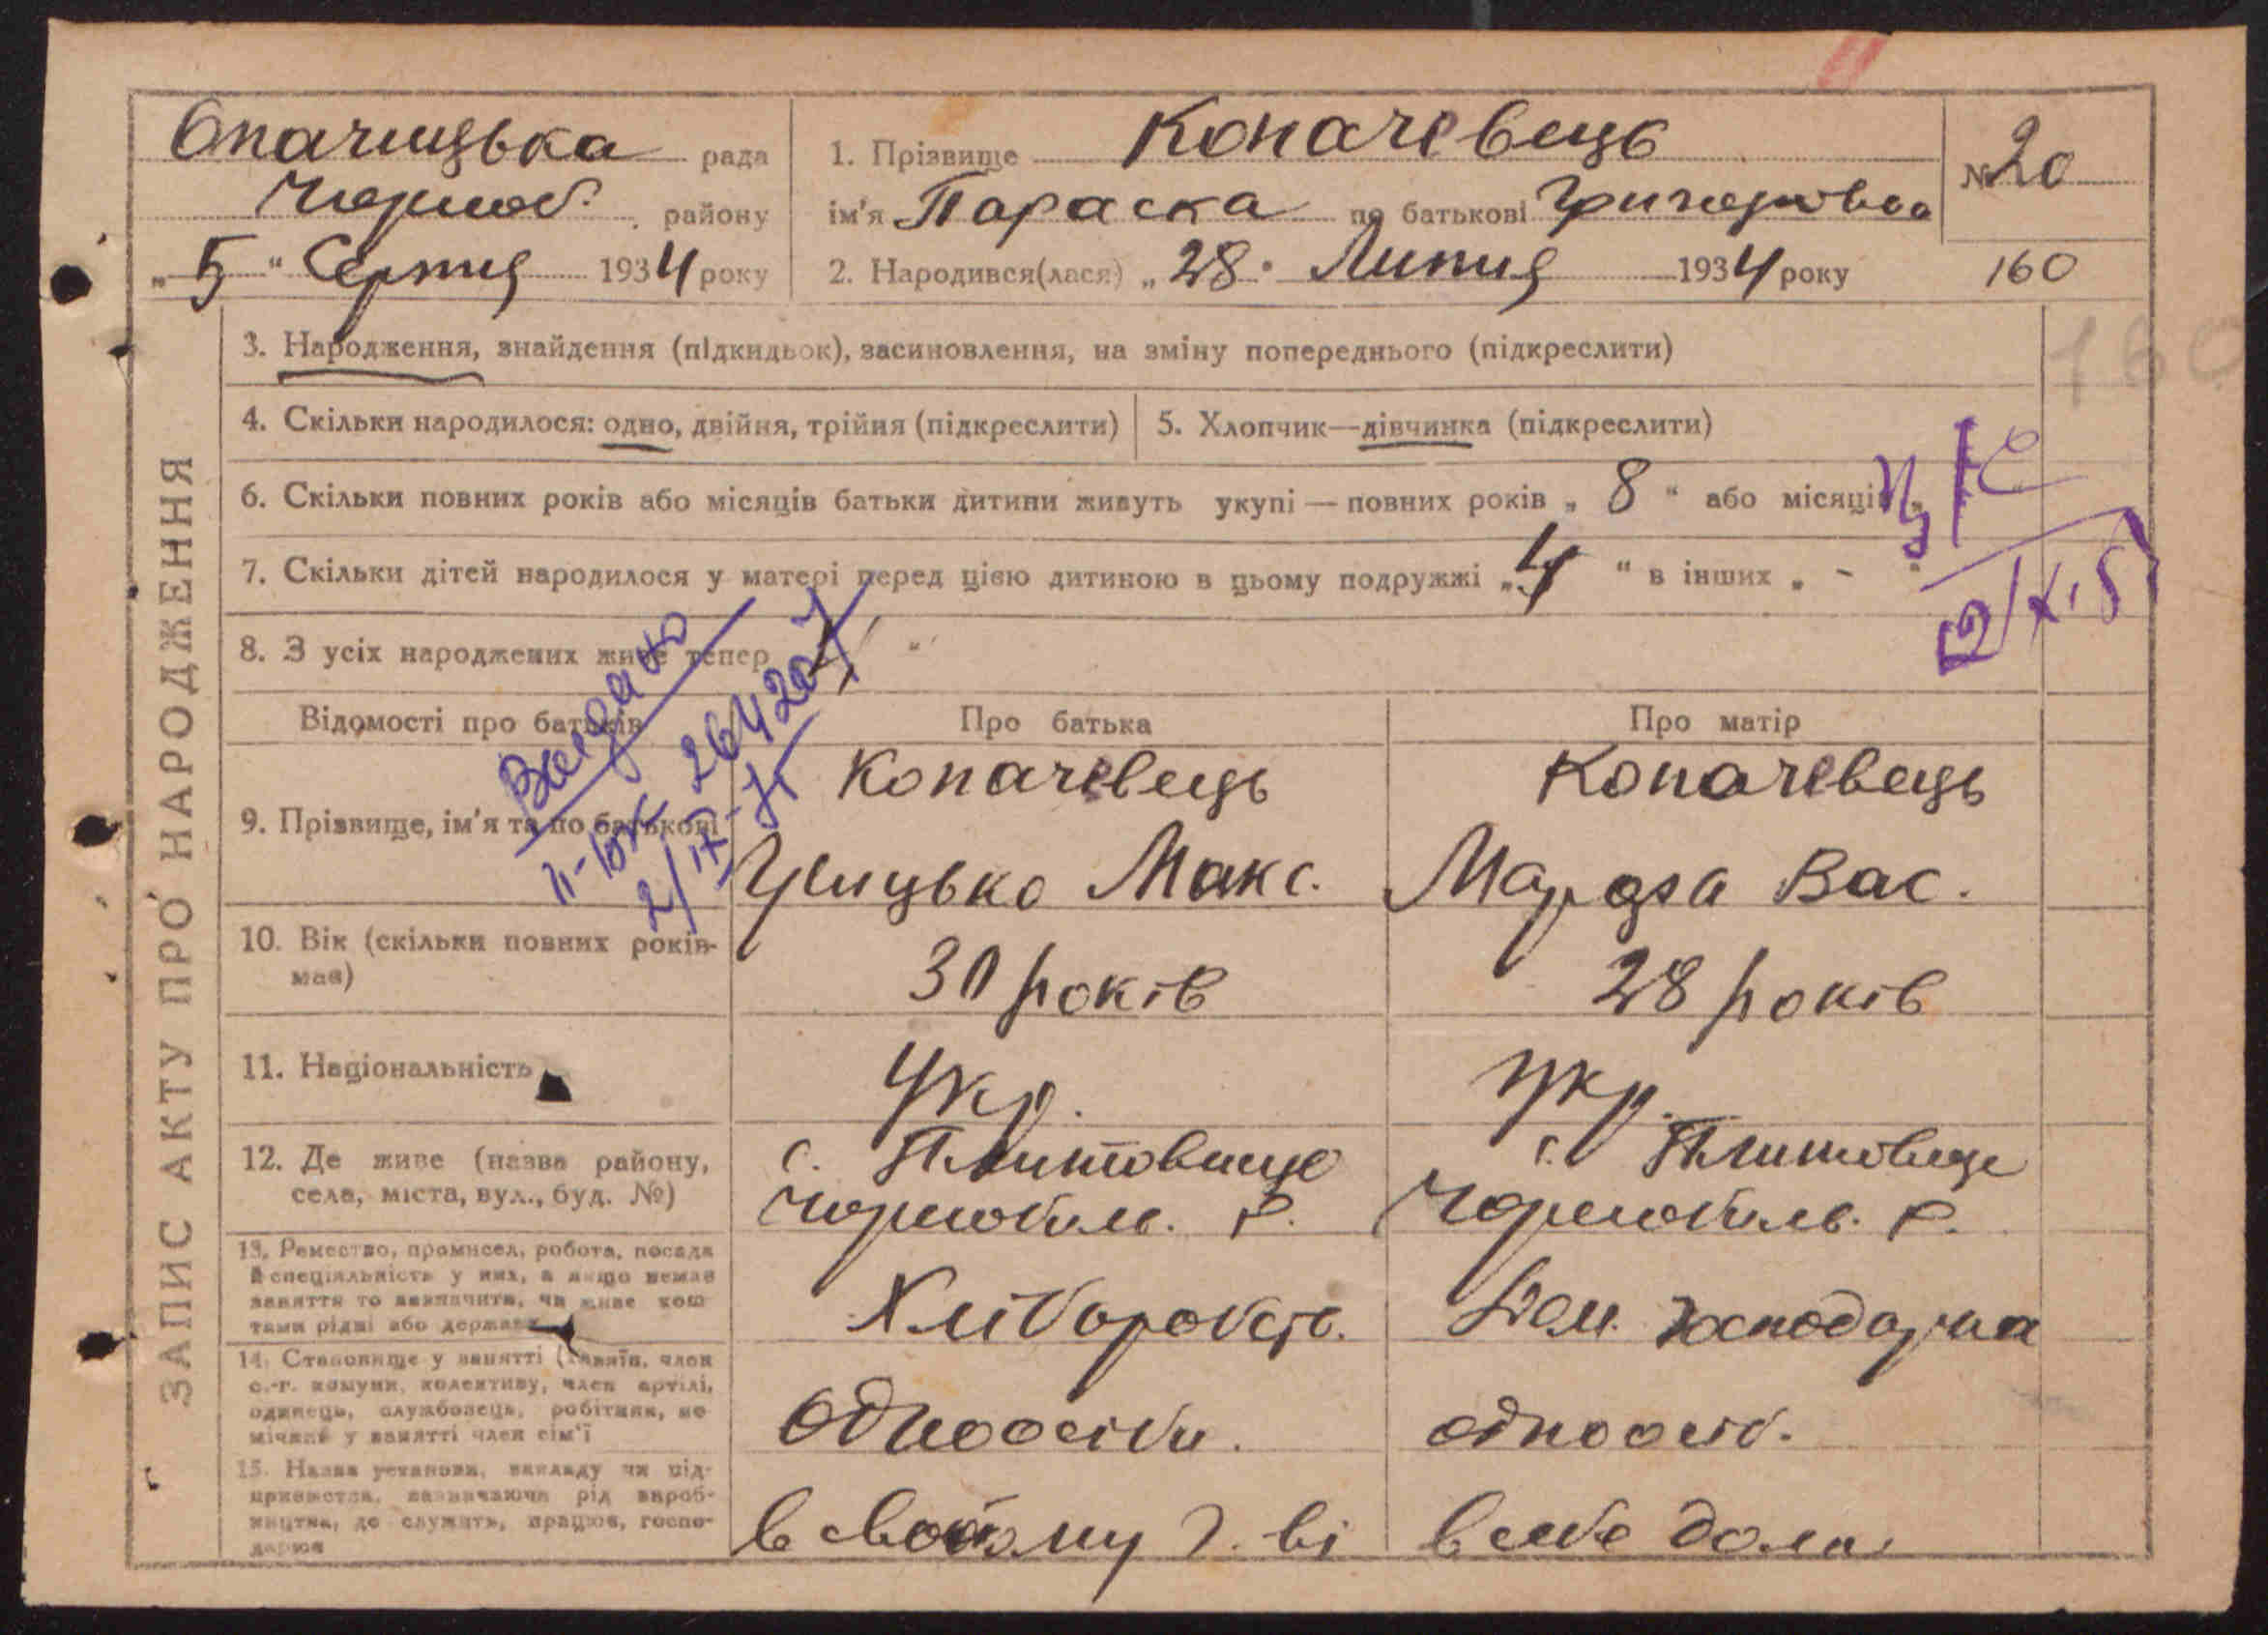 ЗАПИС АКТУ ПРО НАРОДЖЕННЯ
Опачицька рада
Чорноб. району
„5" Серпня 1934 року
1. Прізвище Копачевець
ім'я Параска по батькові Григоровна
2. Народився(лася) „28" Липня 1934 року
№ 20
160
160
3. Народження, знайдення (підкидьок), засиновлення, на зміну попереднього (підкреслити)
4. Скільки народилося: одно, двійня, трійня (підкреслити)
5. Хлопчик—дівчинка (підкреслити)
6. Скільки повних років або місяців батьки дитини живуть укупі — повних років „ 8 " або місяців „
7. Скільки дітей народилося у матері перед цією дитиною в цьому подружжі „4" в інших „ - "
8. З усіх народжених живе тепер
Видано
264207
Відомості про батьків
Про батька
Про матір
9. Прізвище, ім'я та по батькові
Копачевець
Грицько Макс.
Копачевець
Мар Вас.
10. Вік (скільки повних років має)
30 років
28 років
11. Національність
Укр.
Укр.
12. Де живе (назва району,
села, міста, вул., буд. №)
с. Плитовище
Чорнобиль. Р.
с. Плитовище
Чорнобиль. Р.
13. Ремество, промисел, робота, посада
й спеціяльність у них, а якщо немає
заняття то зазначити, чи живе кош
тами рідні або держави
Хліборобств.
Дом. господарка
14. Становище у занятті (хазяїн, член
с.-г. комуни, колективу, член артілі,
одинець, службовець, робітник, по
мічний у занятті член сім'ї
Одноосібн.
одноосіб.
15. Назва установи, закладу чи під-
приємства, зазначаючи рід вироб-
ництва, де служить, працює, госпо-
дарює
в своєму г. ві
в себе дома